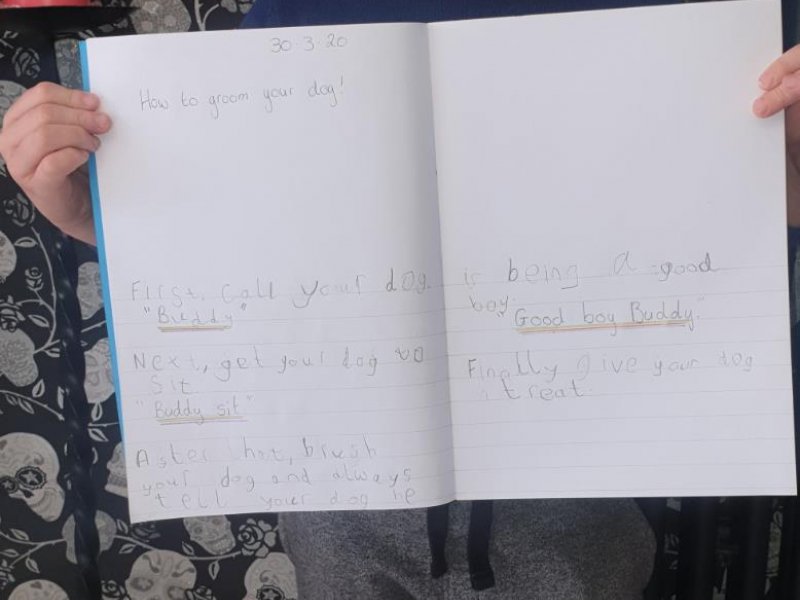 30.3.20
How to groom your dog!
First, call your dog.
"Buddy"
Next, get your dog to
sit.
"Buddy sit"
After that, brush
your dog and always
tell your dog he
is being a good
boy.
"Good boy Buddy."
Finally give your dog
a treat.